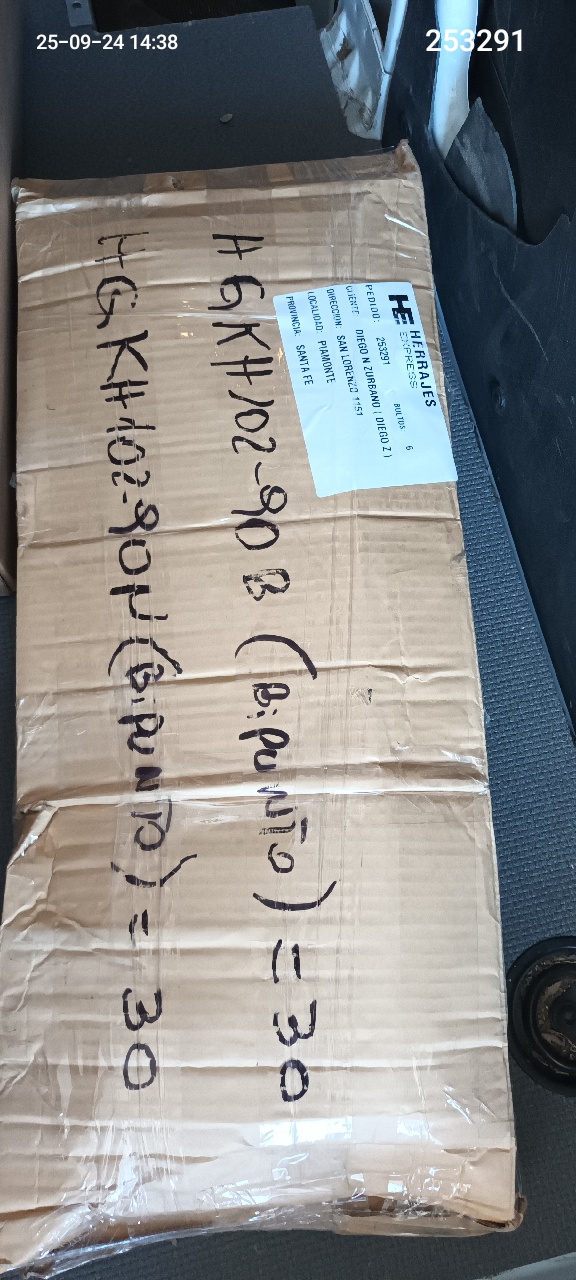 25-09-24 14:38
253291
HE HERRAJES
EXPRESS
PEDIDO: 253291 BULTOS 6
CLIENTE: DIEGO N ZURBANO ( DIEGO Z )
DIRECCION: SAN LORENZO 1151
LOCALIDAD: PIAMONTE
PROVINCIA: SANTA FE
HGKH102-90B (BiPUNTO) = 30
HGKH102-90N (BiPUNTO) = 30